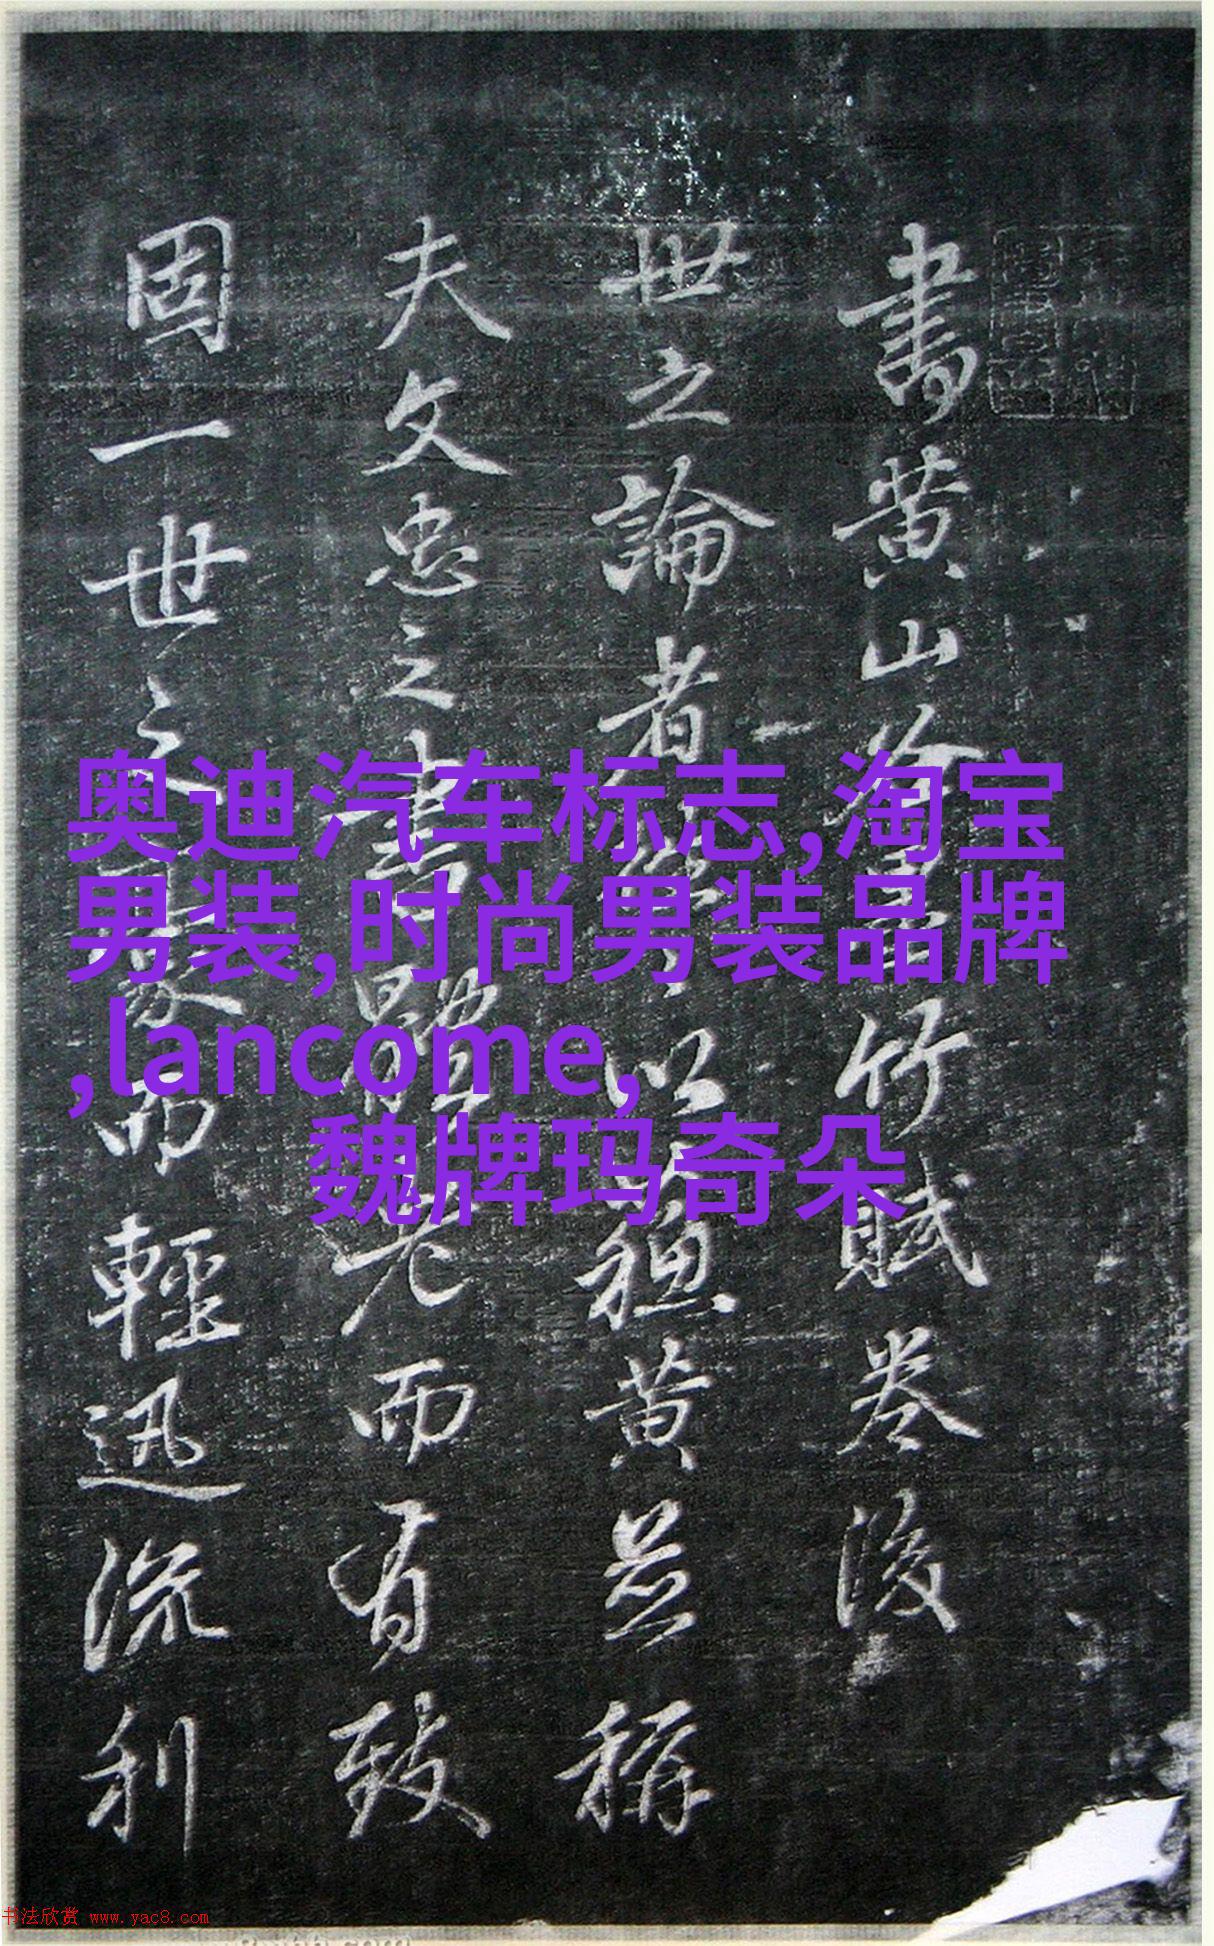 書黄山谷竹賦卷後
世之論者以黄並稱
夫文忠之書體老而有致
固一世之而輕迅流利
奥迪汽车标志,淘宝
男装,时尚男装品牌
,lancome,
魏牌玛奇朵
书法欣赏 www.yac8.com